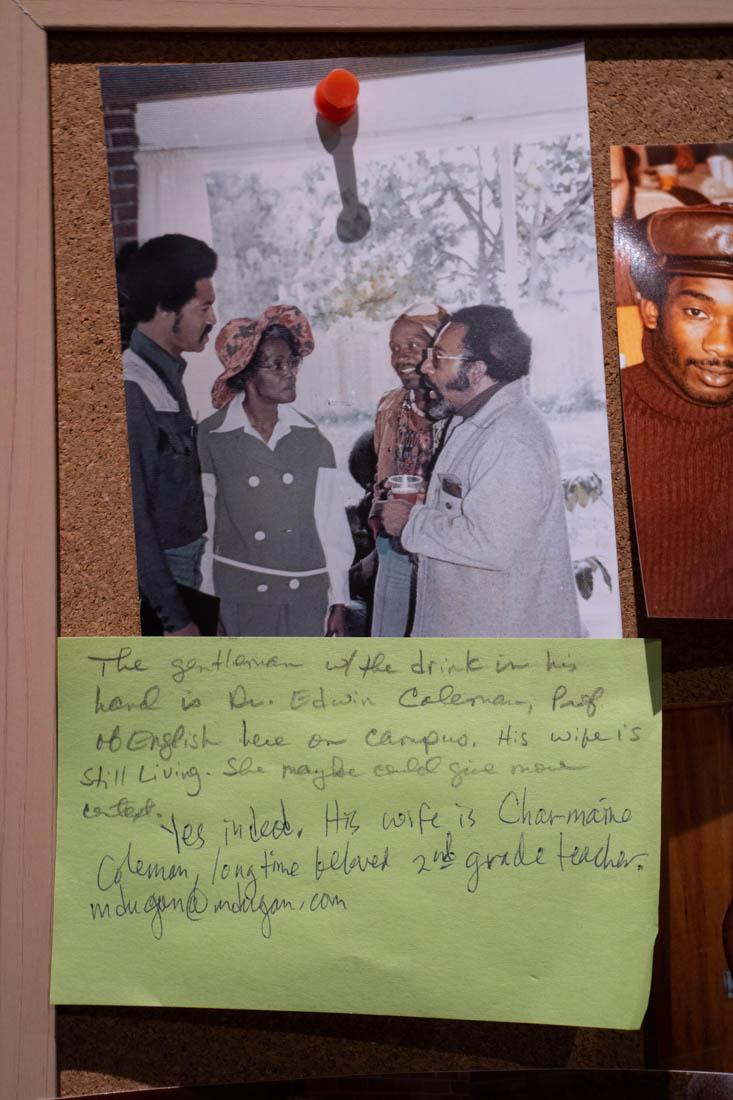 The gentleman w/the drink in his
hand is Dr. Edwin Coleman, Prof
of English here on campus. His wife is
still Living. She maybe could give more
context.
Yes indeed. His wife is Charmaine
Coleman, longtime beloved 2nd grade teacher.
mdugan@mdugan.com